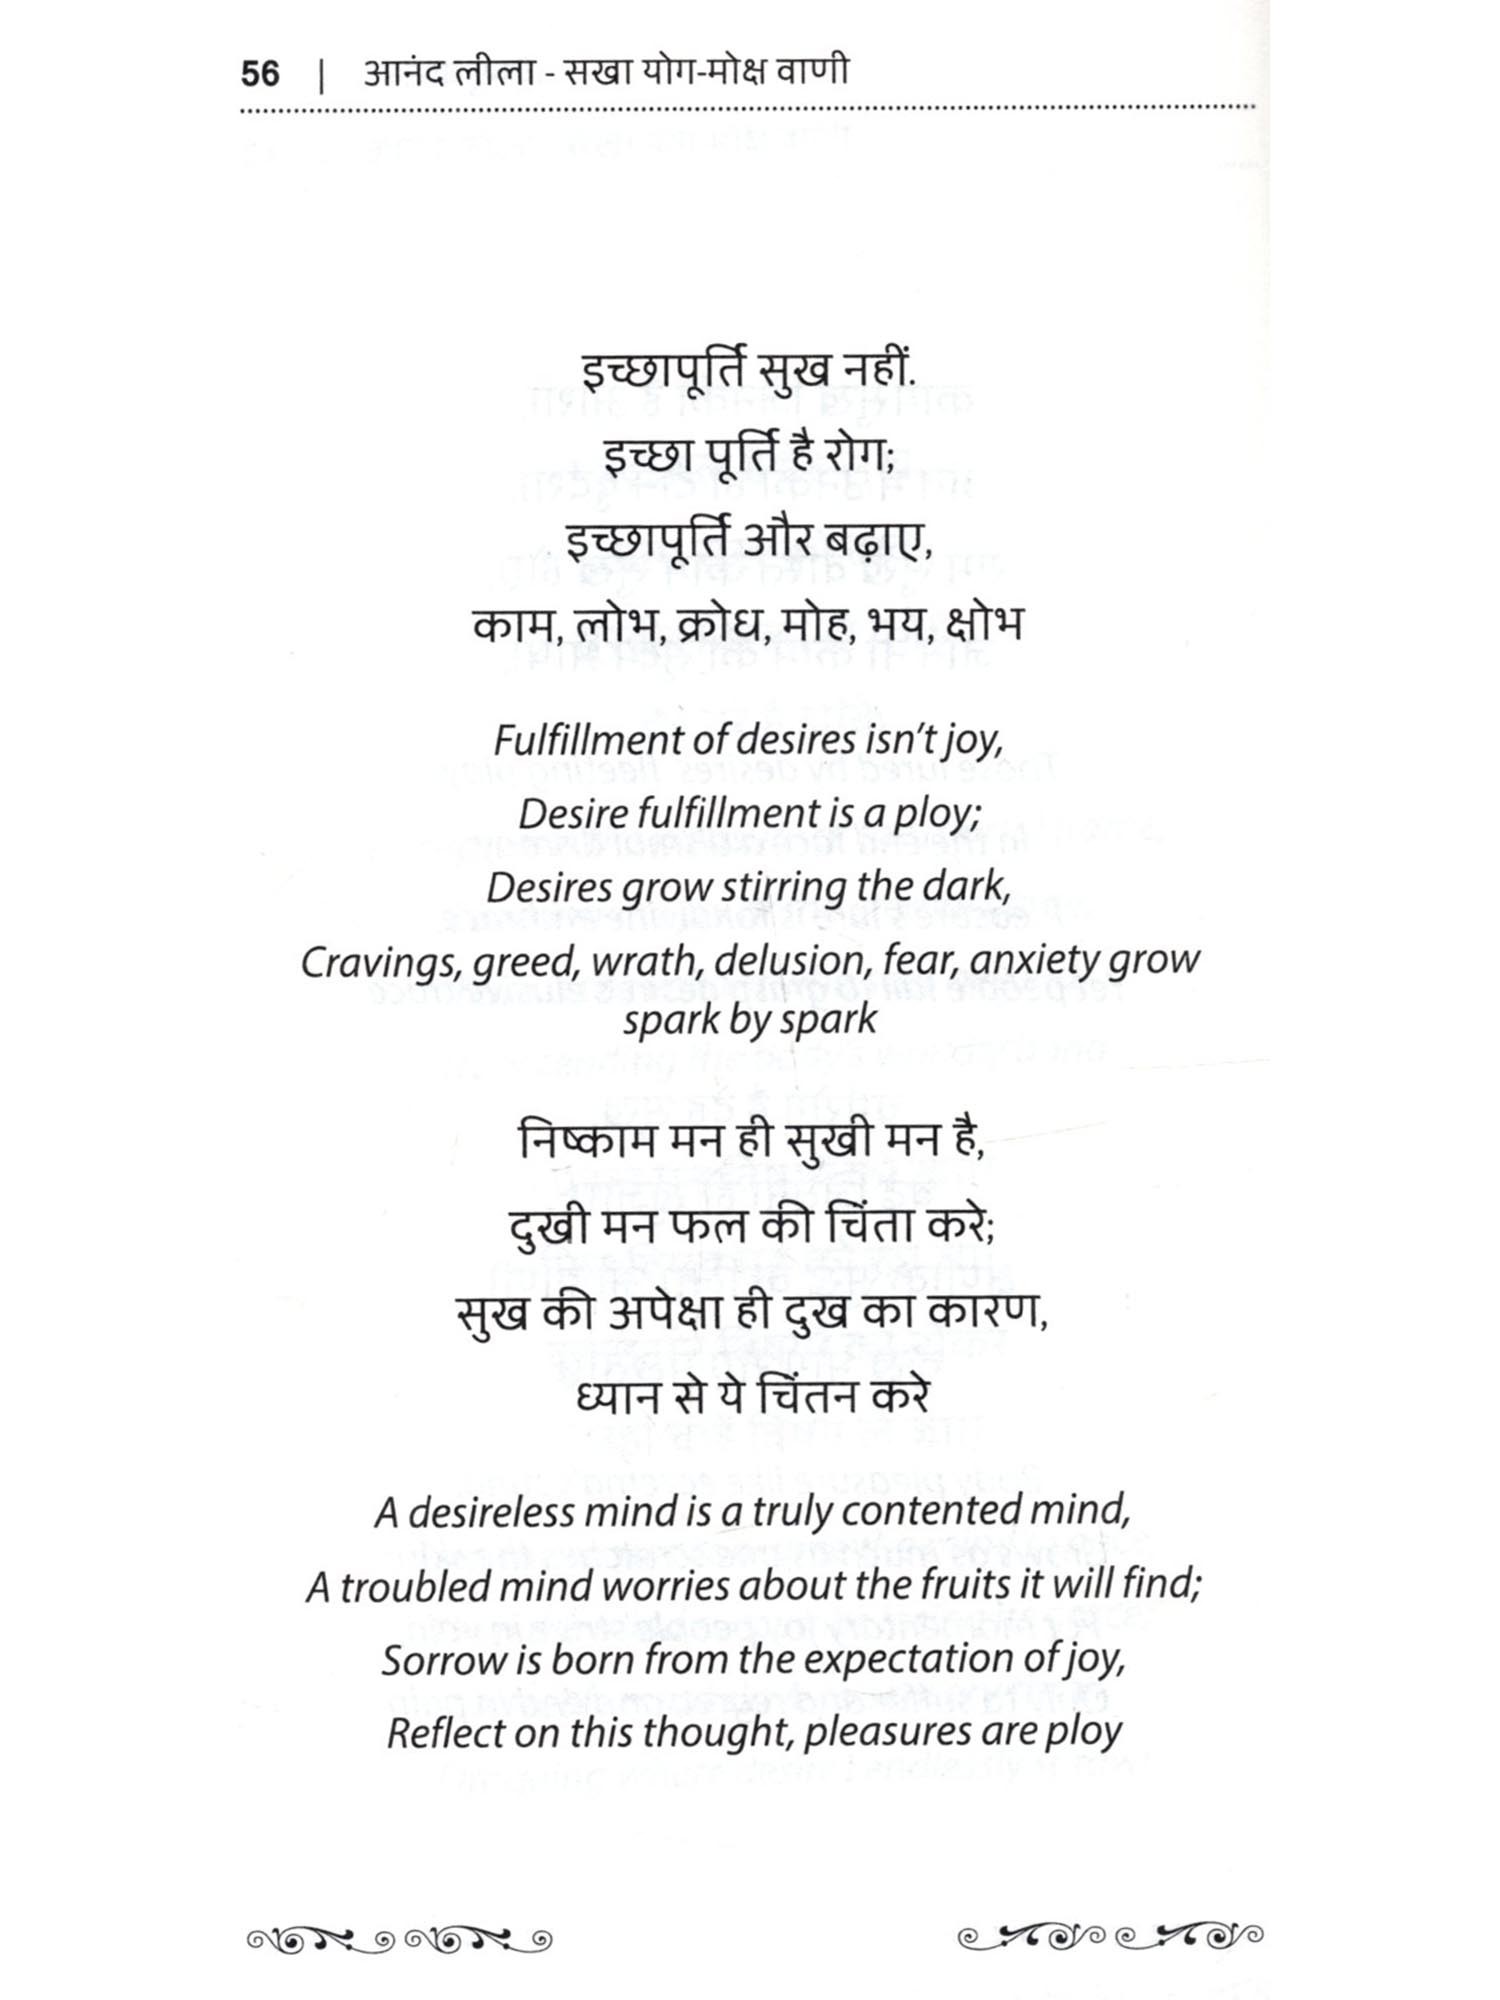 56 | आनंद लीला - सखा योग-मोक्ष वाणी
इच्छापूर्ति सुख नहीं.
इच्छा पूर्ति है रोग;
इच्छापूर्ति और बढ़ाए,
काम, लोभ, क्रोध, मोह, भय, क्षोभ
Fulfillment of desires isn’t joy,
Desire fulfillment is a ploy;
Desires grow stirring the dark,
Cravings, greed, wrath, delusion, fear, anxiety grow
spark by spark
निष्काम मन ही सुखी मन है,
दुखी मन फल की चिंता करे;
सुख की अपेक्षा ही दुख का कारण,
ध्यान से ये चिंतन करे
A desireless mind is a truly contented mind,
A troubled mind worries about the fruits it will find;
Sorrow is born from the expectation of joy,
Reflect on this thought, pleasures are ploy